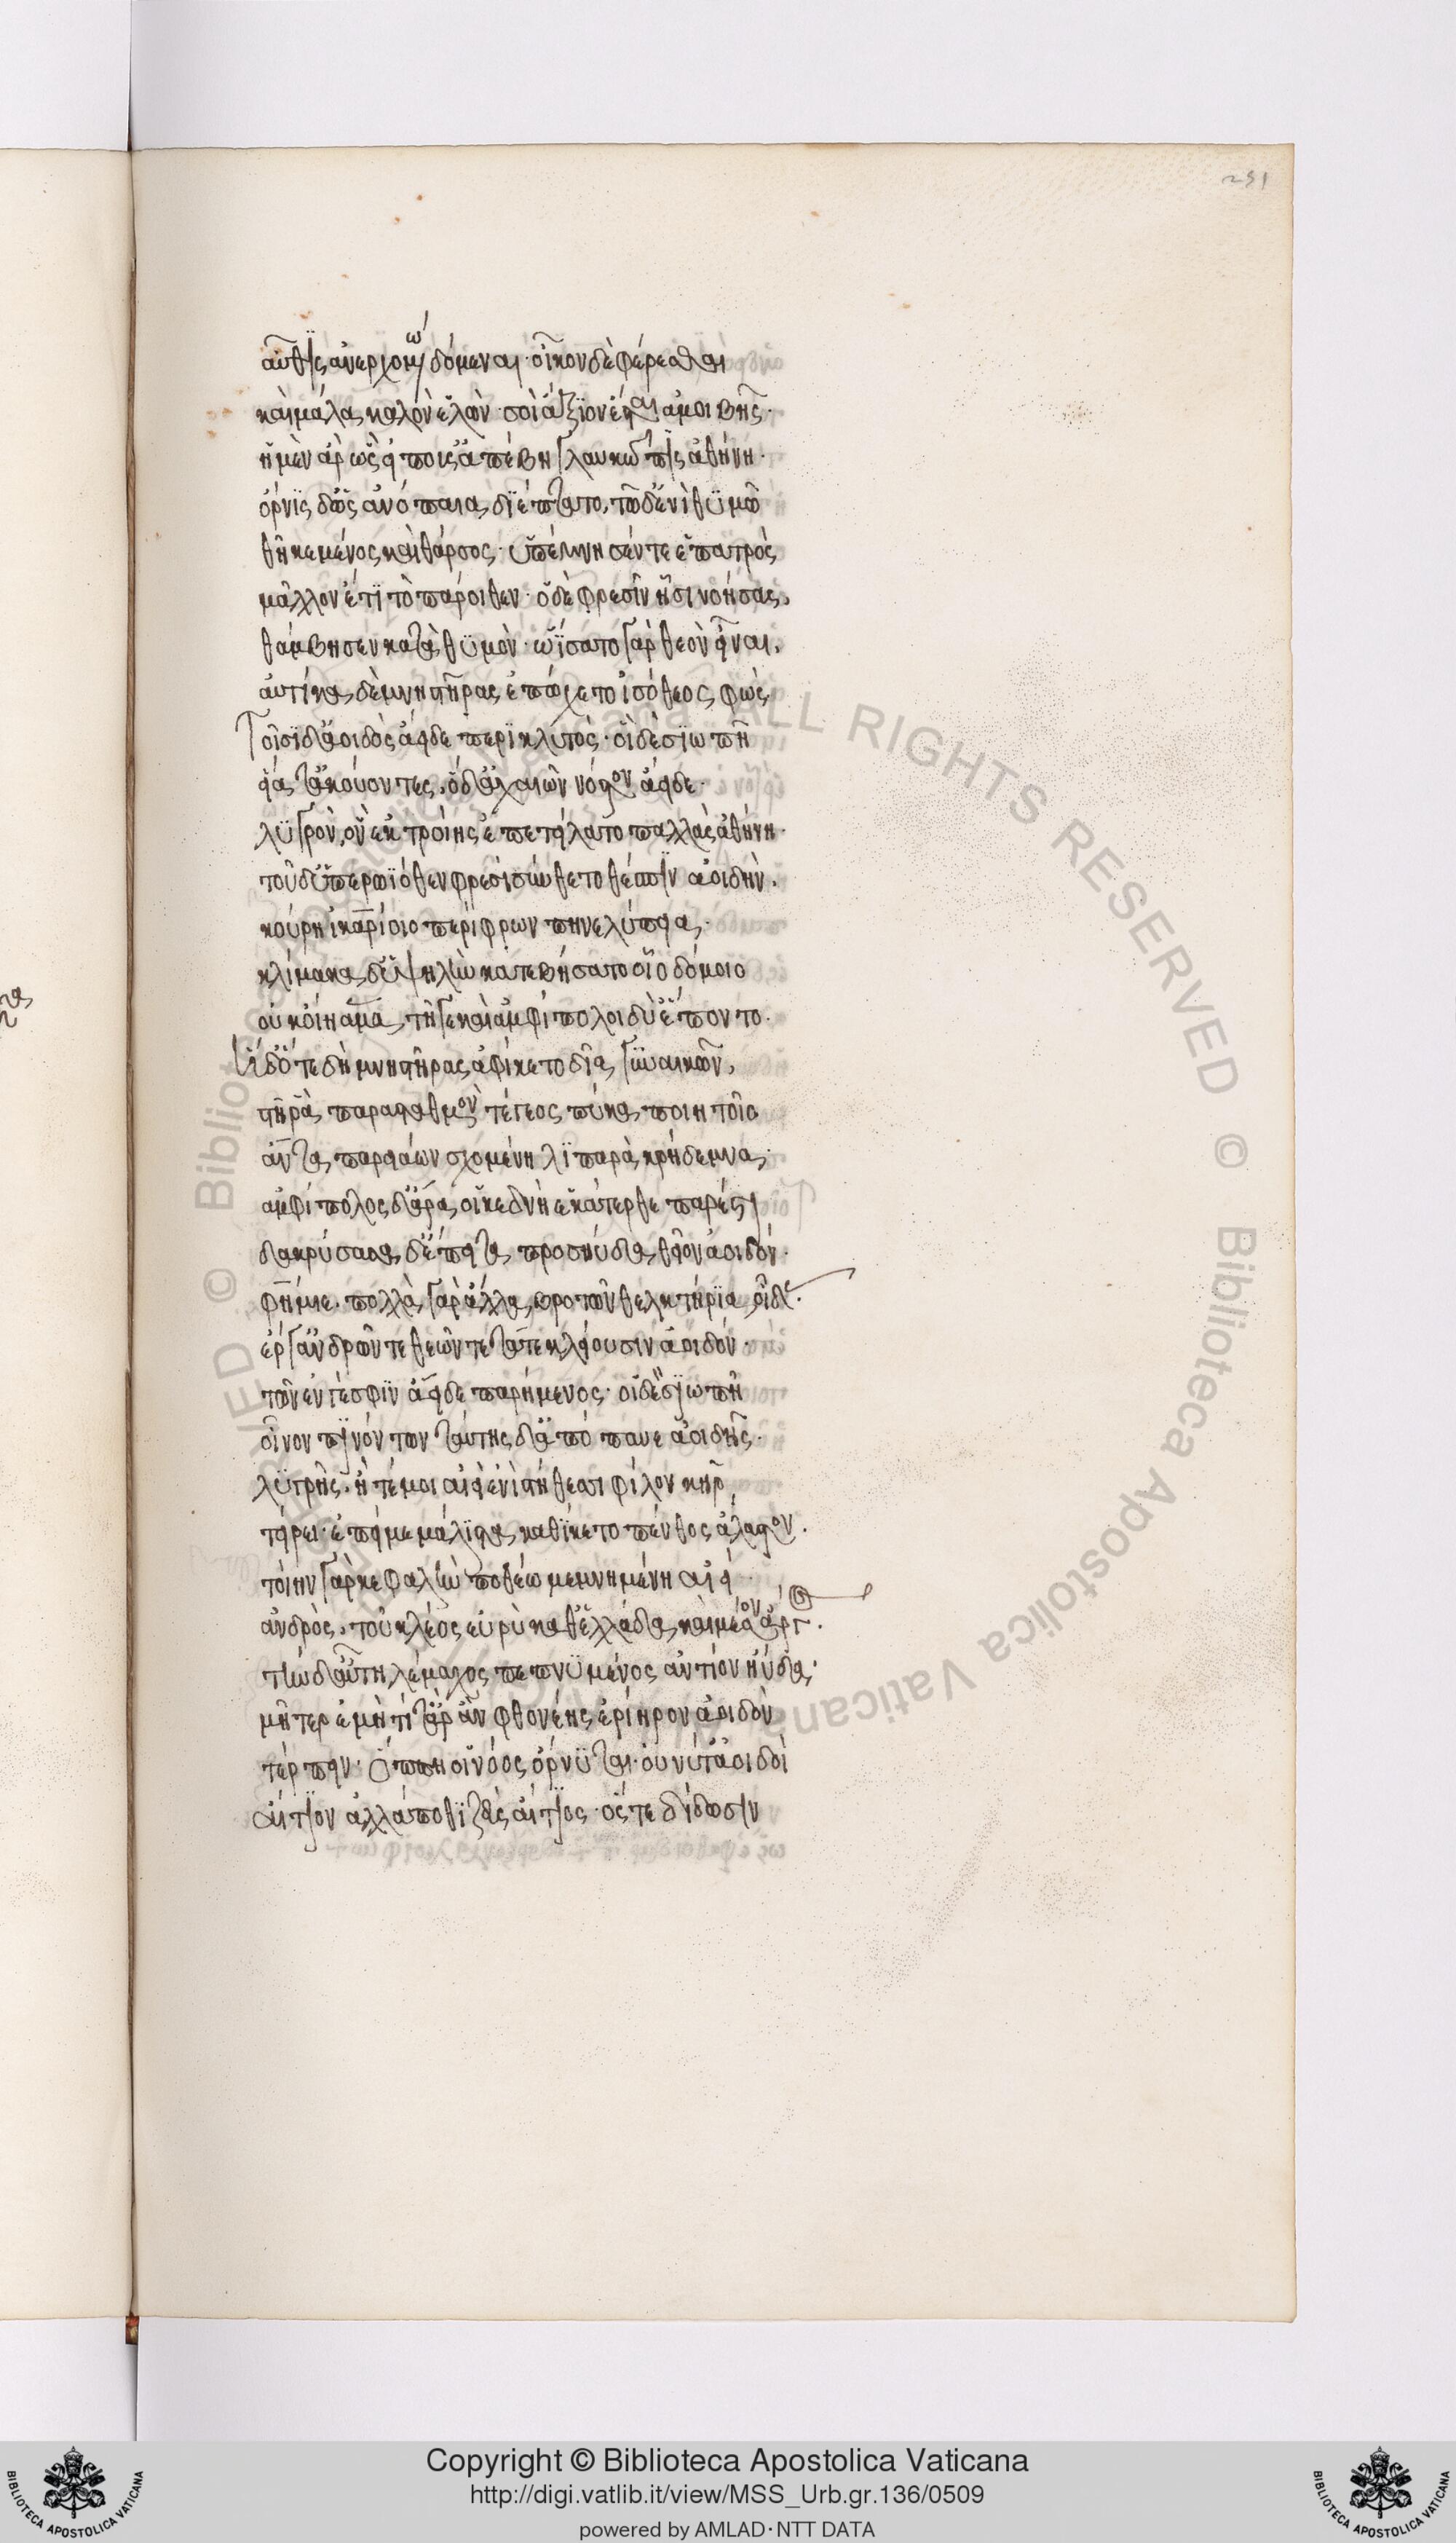 251
αὖθις ἀνερχομένω δόμεναι· οἶκον δὲ φέρεσθαι
καὶ μάλα καλὸν ἑλὼν· σοὶ ἄξϊον ἔσται ἀμοιβῆς·
ἡ μὲν ἄρ ὣς εἰποῦσ ἀπέβη γλαυκῶπις ἀθήνη·
ὄρνϊς δ ὣς ἀνόπαια διέπτατο, τῶ δ ἐνὶ θϋμῶ
θῆκε μένος καὶ θάρσος· ὑπέμνησέν τε ἑ πατρὸς
μᾶλλον ἔτϊ τὸ πάροιθεν· ὁ δὲ φρεσὶν ᾗσι νοήσας,
θάμβησεν κατὰ θϋμὸν· ὠΐσατο γὰρ θεὸν εἶναι,
αὐτίκα δὲ μνηστῆρας ἐπώχετο ἰσόθεος φώς
Τοῖσϊ δ ἀοιδὸς ἄειδε περϊκλϋτὸς· οἱ δὲ σϊωπῆ
εἵατ ἀκούοντες, ὁ δ ἀχαιῶν νόστον ἄειδε·
λϋγρὸν, ὃν ἐκ τροίης ἐπετείλατο παλλὰς ἀθήνη·
τοῦ δ ὑπερωϊόθεν φρεσὶ σύνθετο θέσπϊν ἀοιδὴν,
κούρη ἰκαρίοιο περίφρων πηνελόπεια·
κλίμακα δ ὑψηλὴν κατεβήσατο οἷο δόμοιο
οὐκ οἴη ἅμα τῆγε καὶ ἀμφίπολοι δύ ἕποντο·
Ἡ δ ὅτε δὴ μνηστῆρας ἀφίκετο δῖα γϋναικῶν,
στῆ ρὰ παρὰ σταθμὸν τέγεος πύκα ποιητοῖο
ἄντα παρειάων σχομένη λϊπαρὰ κρήδεμνα·
ἀμφίπολος δ ἄρα οἱ κεδνὴ ἑκάτερθε παρέστη
δακρύσασα δ ἔπειτα προσηύδα θεῖον ἀοιδόν·
φήμιε· πολλὰ γὰρ ἄλλα βροτῶν θελκτήρϊα οἶδας·
ἔργ ἀνδρῶν τε θεῶν τε τάτε κλείουσιν ἀοιδόν·
τῶν ἕν γέ σφϊν ἄειδε παρήμενος· οἱ δὲ σϊωπῆ
οἶνον πϊνόντων ταύτης δ ἀπόπαυε ἀοιδῆς·
λϋγρῆς· ἥ τέ μοι αἰεὶ ἐνὶ στήθεσι φίλον κῆρ
τείρει· ἐπεί με μάλϊστα καθΐκετο πένθος ἄλαστον·
τοίην γὰρ κεφαλὴν ποθέω μεμνημένη αἰεὶ
ἀνδρὸς, τοῦ κλέος εὐρὺ καθ ἑλλάδα καὶ μέσον ἄργος·
τὴν δ αὖ τηλέμαχος πεπνϋμένος ἀντίον ηὔδα·
μῆτερ ἐμὴ τί τ ἄρ ἂν φθονέης ἐρίηρον ἀοιδὸν
τέρπειν· ὅππη οἱ νόος ὄρνϋται· οὔ νύ τ ἀοιδοὶ
αἴτϊον ἀλλά ποθϊ ζεὺς αἴτϊος· ὅς τε δίδωσϊν
Copyright © Biblioteca Apostolica Vaticana
http://digi.vatlib.it/view/MSS_Urb.gr.136/0509
powered by AMLAD·NTT DATA